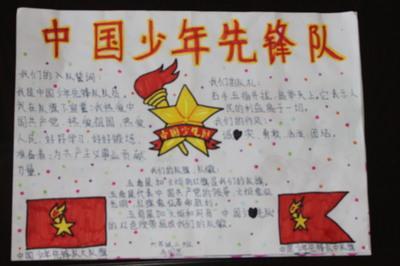 中国少年先锋队
我们的入队誓词：
我是中国少年先锋队队员，
我在队旗下宣誓：我热爱中
国共产党，热爱祖国，热爱
人民，好好学习，好好锻炼，
准备着：为共产主义事业贡献
力量。
我们的队礼：
右手五指并拢，高举头上。它表示人
民的利益高于一切。
我们的作风：
诚 实、勇敢、活泼、团结。
中国少先队
我们的队旗、队徽：
五角星加火炬的红旗是我们的队旗。
五角星代表中国共产党的领导，火炬象
征光明，红旗象征革命胜利。
五角星加火炬和写有 中国少 先队
的红色绶带组成我们的队徽。
中国少年先锋队大队旗
中国少年先锋队中队旗